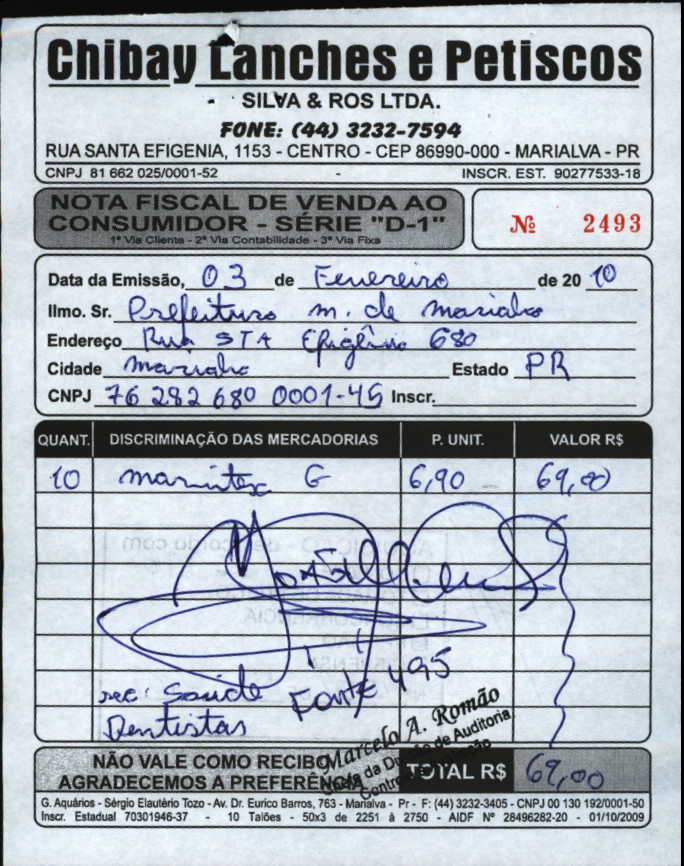 Chibay Lanches e Petiscos
SILVA & ROS LTDA.
FONE: (44) 3232-7594
RUA SANTA EFIGENIA, 1153 - CENTRO - CEP 86990-000 - MARIALVA - PR
CNPJ 81 662 025/0001-52 - INSCR. EST. 90277533-18
NOTA FISCAL DE VENDA AO
CONSUMIDOR - SÉRIE "D-1"
1ª Via Cliente - 2ª Via Contabilidade - 3ª Via Fixa
Nº 2493
Data da Emissão, 03 de Fevereiro de 20 10
Ilmo. Sr. Prefeitura m. de marialva
Endereço Rua STA Efigênia 680
Cidade marialva Estado PR
CNPJ 76 282 680 0001-45 Inscr.
QUANT. DISCRIMINAÇÃO DAS MERCADORIAS P. UNIT. VALOR R$
10 marmitex G 6,90 69,00
rec: Saúde Fonte 495
Dentistas
Marcelo A. Romão
de Auditoria
NÃO VALE COMO RECIBO
AGRADECEMOS A PREFERÊNCIA
TOTAL R$ 69,00
G. Aquários - Sérgio Elautério Tozo - Av. Dr. Eurico Barros, 763 - Marialva - Pr - F: (44) 3232-3405 - CNPJ 00 130 192/0001-50
Inscr. Estadual 70301946-37 - 10 Talões - 50x3 de 2251 à 2750 - AIDF Nº 28496282-20 - 01/10/2009